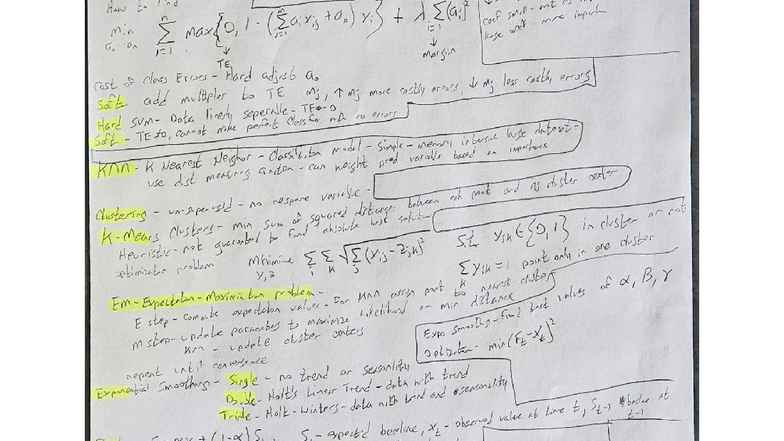 How to find
min Σ max{0, 1 - (Σ aᵢxᵢⱼ + a₀) yⱼ} + λ Σ(aᵢ)²
a₀...aₙ j=1 i=1 i=1
TE margin
large
Cost of Class Errors - Hard adjust a₀
Soft add multiplier to TE mⱼ, ↑ mⱼ more costly errors, ↓ mⱼ less costly errors
Hard SVM - Data linerly seperable - TE=0
Soft - TE≠0, cannot make perfect Classifier no errors
KNN - K Nearest Neighbor - Classification model - Simple - memory intensive large dataset -
use dist measures - can weight pred variable based on importance
Clustering - un-supervised - no response variable -
K-Means Clusters - min Sum of squared distances between each point and its cluster center
Heuristic - not guaranteed to find absolute best solution
optimization problem Minimize Σ Σ √Σ(xᵢⱼ - zⱼₖ)² S.t. yᵢₖ ∈ {0, 1} in cluster or not
y,z i k j Σ yᵢₖ = 1 point only in one cluster
k
Em - Expectation - Maximization problem -
E step - compute expectation values - for KNN assign point to nearest cluster
M step - update parameters to maximize likelihood or min distance
KNN - update cluster centers
repeat until convergence
Expo smoothing - find best values of α, β, γ
Optimization - min(Fₜ - xₜ)²
Exponential Smoothing - Single - no trend or seasonality
Double - Holt's Linear Trend - data with trend
Triple - Holt-Winters - data with trend and seasonality
+ (1-α) S Sₜ - expected baseline, xₜ - observed value at time t, Sₜ₋₁ baseline at
t-1